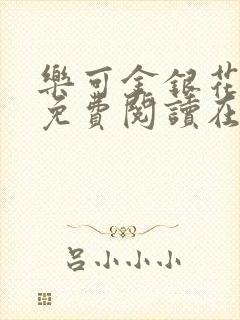 樂可金銀花
免費閱讀在
呂小小小